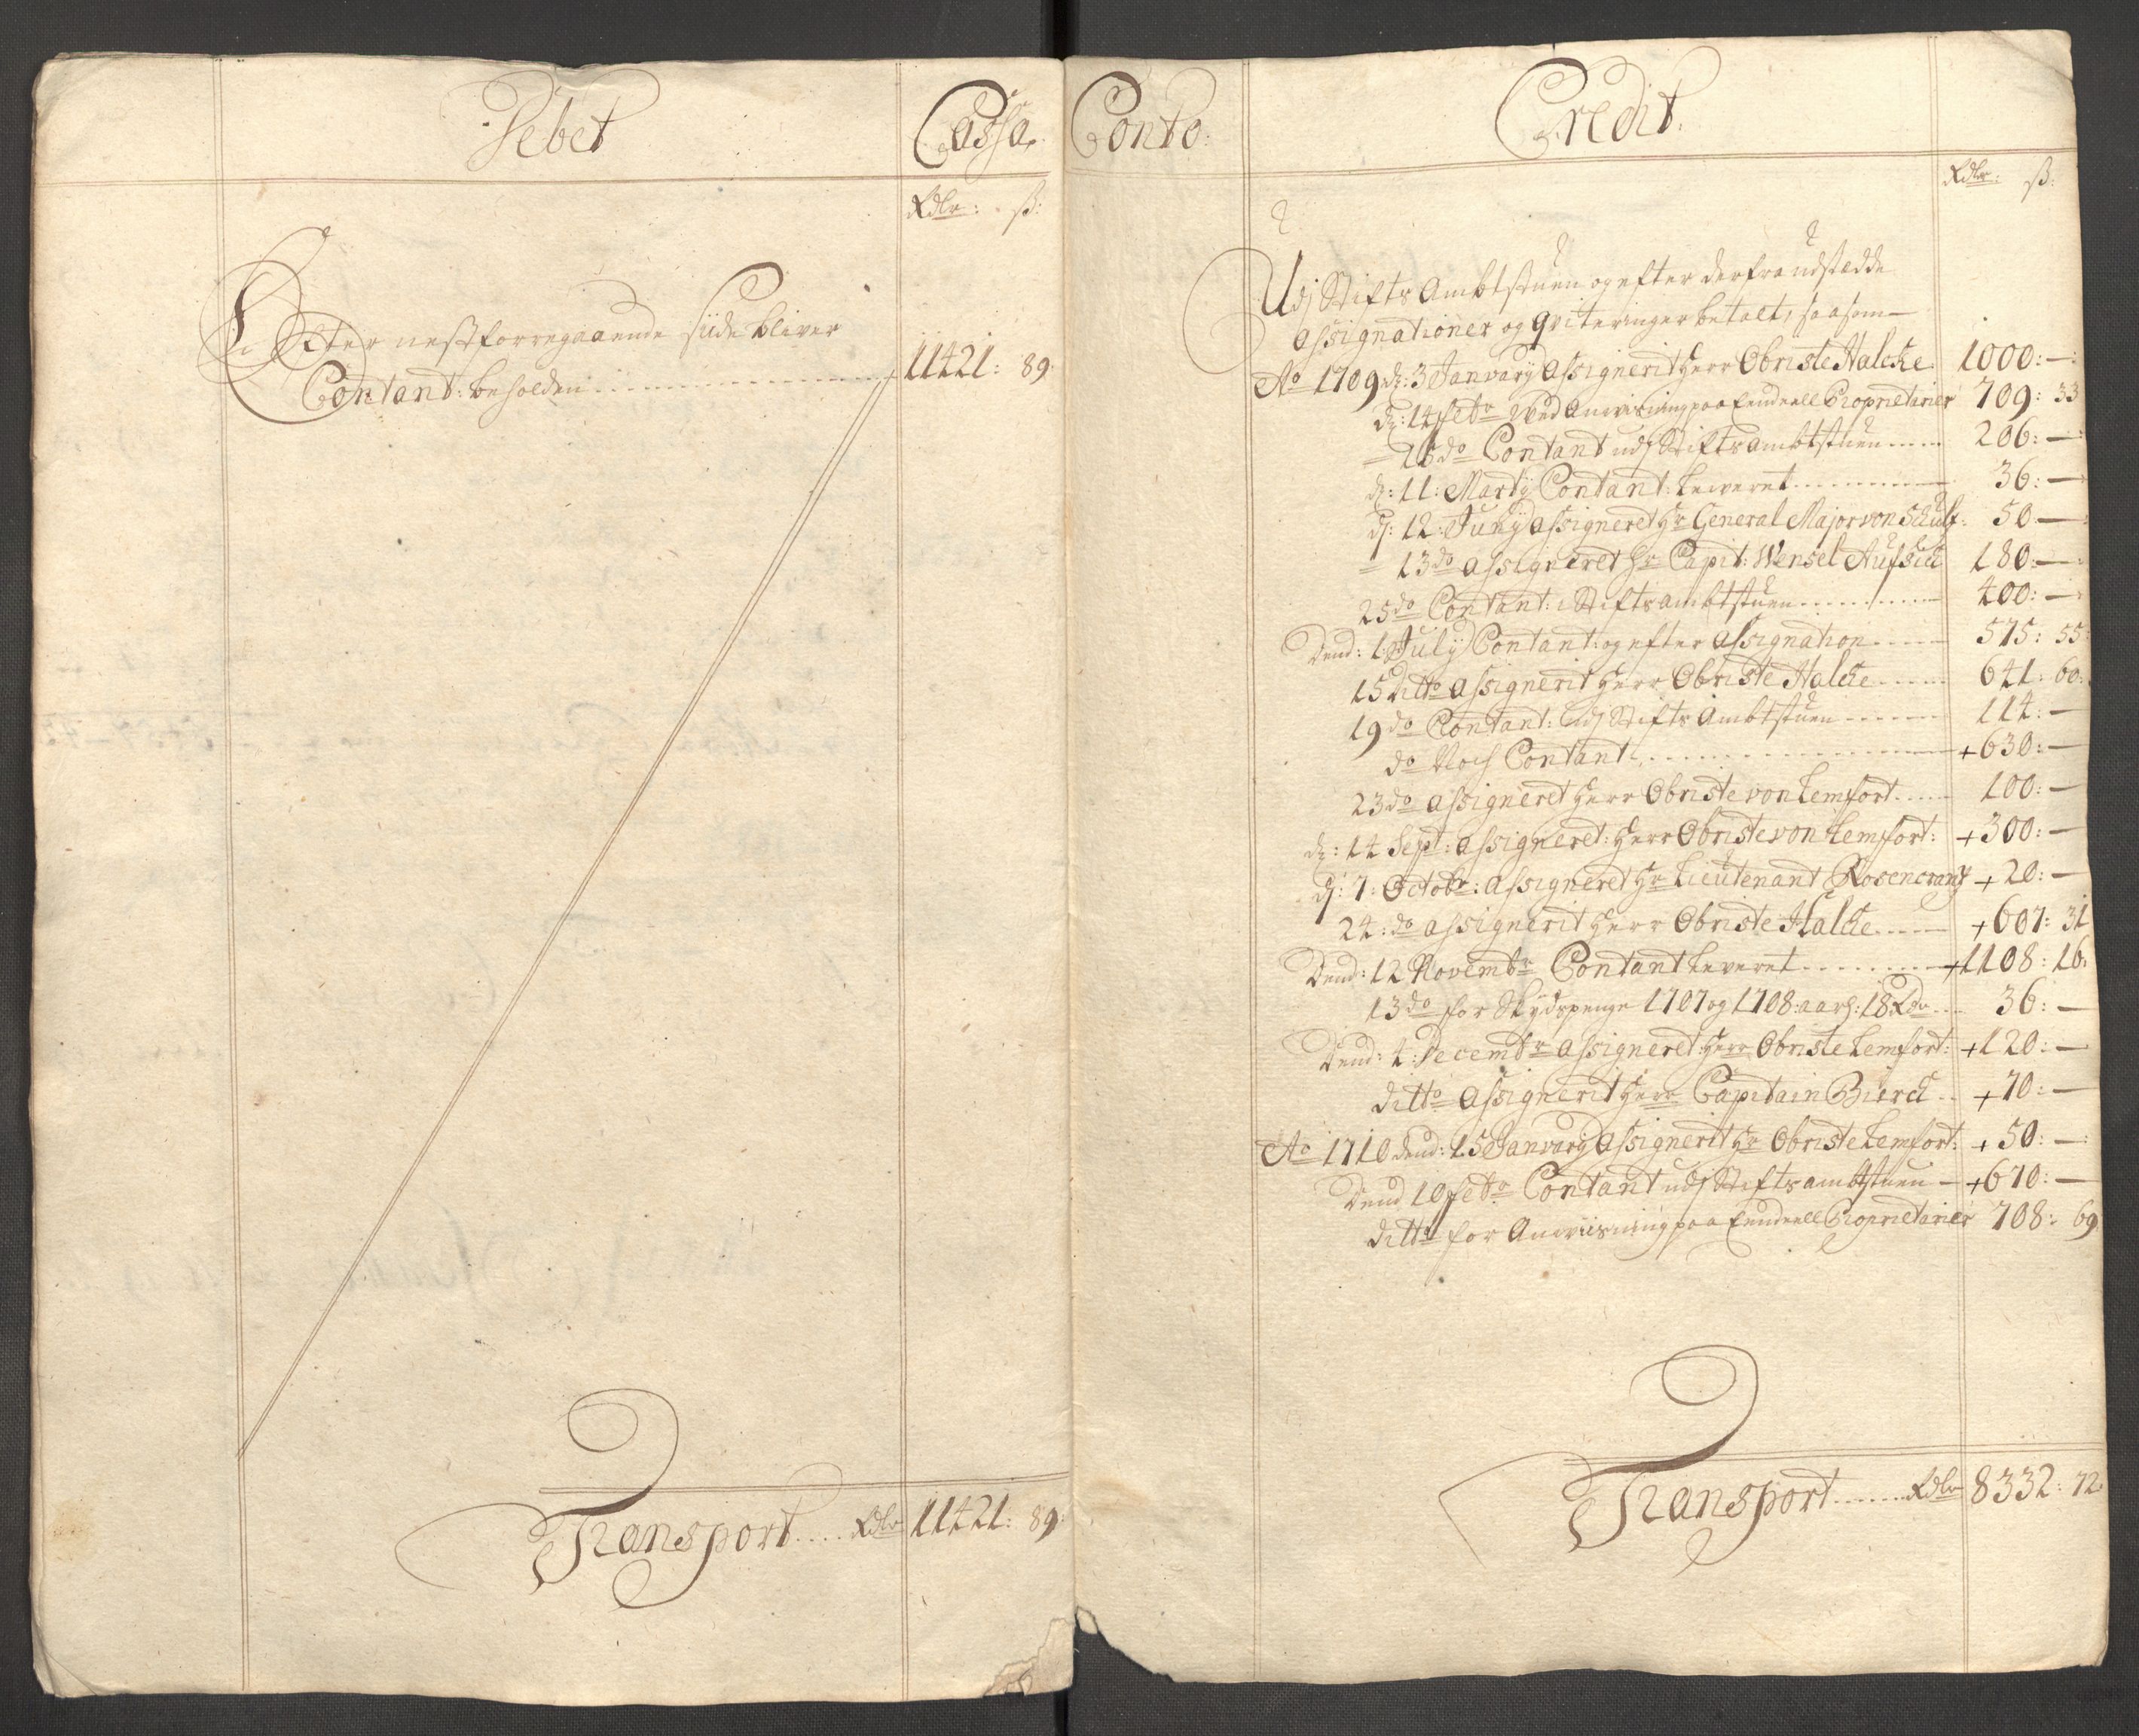 Debet
Cassa
Rdlr: ß:
Efter nestforregaaende siide bliver
Contant: beholden 11421: 89
Transport Rdlr 11421: 89
Conto:
Credit.
Rdlr: ß:
Udj Stifts Ambtstuen og efter derfra udstædde
assignationer og qviteringer betalt, saasom
Ao 1709 d: 3 January assignerit Herr Obriste Halcke 1000: —
d: 14 febr ved Anvisning paa Eendeell Proprietarier 709: 33
15 do Contant udj Stiftsambtstuen 206: —
d: 11: Marty Contant: Leweret 36: —
d: 12: Juny assigneret Hr General Major von Schultz: 50 —
13 do assigneret Hr Capit: Wensel Aufsich 180: —
25 do Contant: i Stiftsambtstuen 400: —
Dend: 1: July Contant: og efter assignation 575: 55
15 ditto assignerit Herr Obriste Halcke 641: 60
19 do Contant: udj Stifts Ambtstuen 114: —
do Noch Contant +630: —
23 do assigneret Herr Obriste von Lemfort 100: —
d: 14 Sept: assigneret: Herr Obriste von Lemfort: +300: —
d: 7: Octobr: assigneret Hr Lieutenant Rosencrantz +20: —
24: do assignerit Herr Obriste Halcke +607: 31
Dend: 12 Novembr Contant Leveret +1108: 16:
13 do for Skydspenge 1707 og 1708: aarl: 18 Rdr 36: —
Dend: 4: Decembr assigneret: Herr Obriste Lemfort: +120: —
ditto assignerit Herr Capitain Bierch +70: —
Ao 1710 dend: 15 January assignerit Hr Obriste Lemfort: +50: —
Dend 10 febr Contant udj Stiftsambtstuen +670: —
ditto for Anviisning paa Eendeell Proprietarier 708: 69
Transport Rdlr 8332: 72